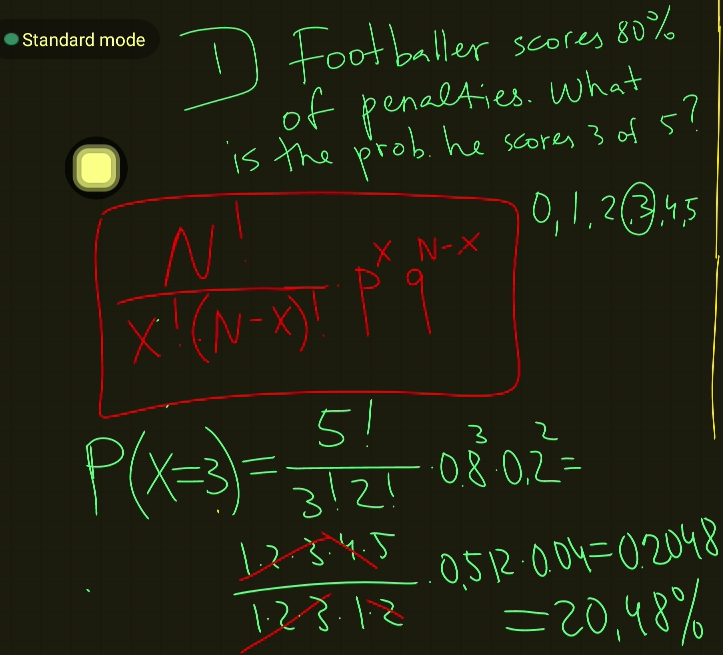 Standard mode
1) Footballer scores 80%
of penalties. What
is the prob. he scores 3 of 5?
0, 1, 2, 3, 4, 5
N! / X!(N-X)! · P^X q^N-X
P(X=3) = 5! / 3!2! · 0.8^3 · 0,2^2 =
1·2·3·4·5 / 1·2·3·1·2 · 0,512 · 0.04 = 0.2048
= 20,48%